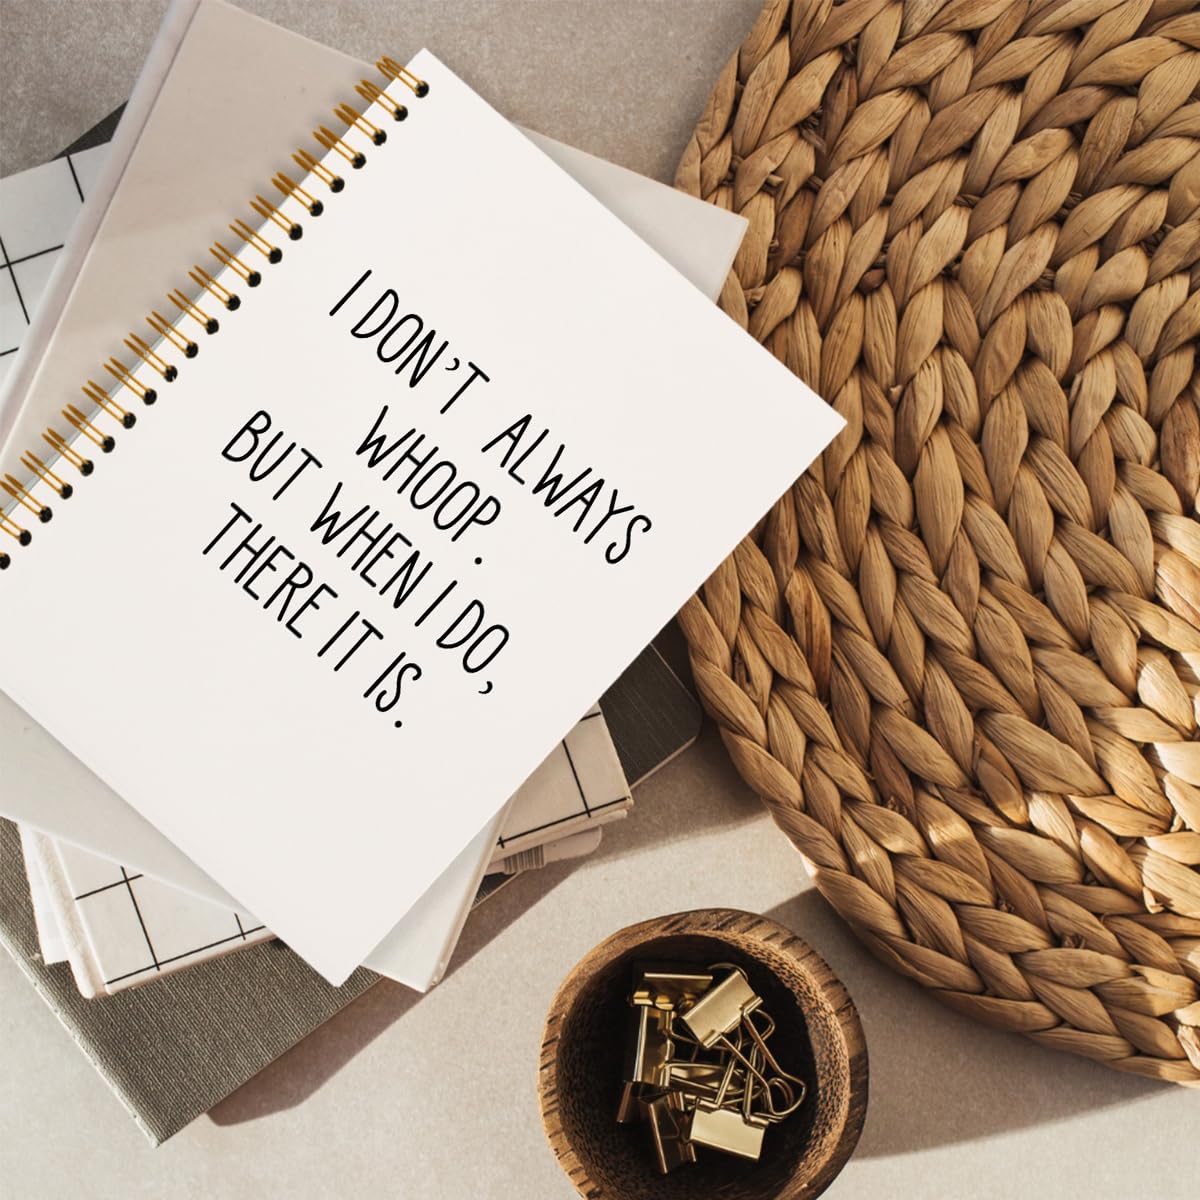 I DON'T ALWAYS
WHOOP.
BUT WHEN I DO,
THERE IT IS.